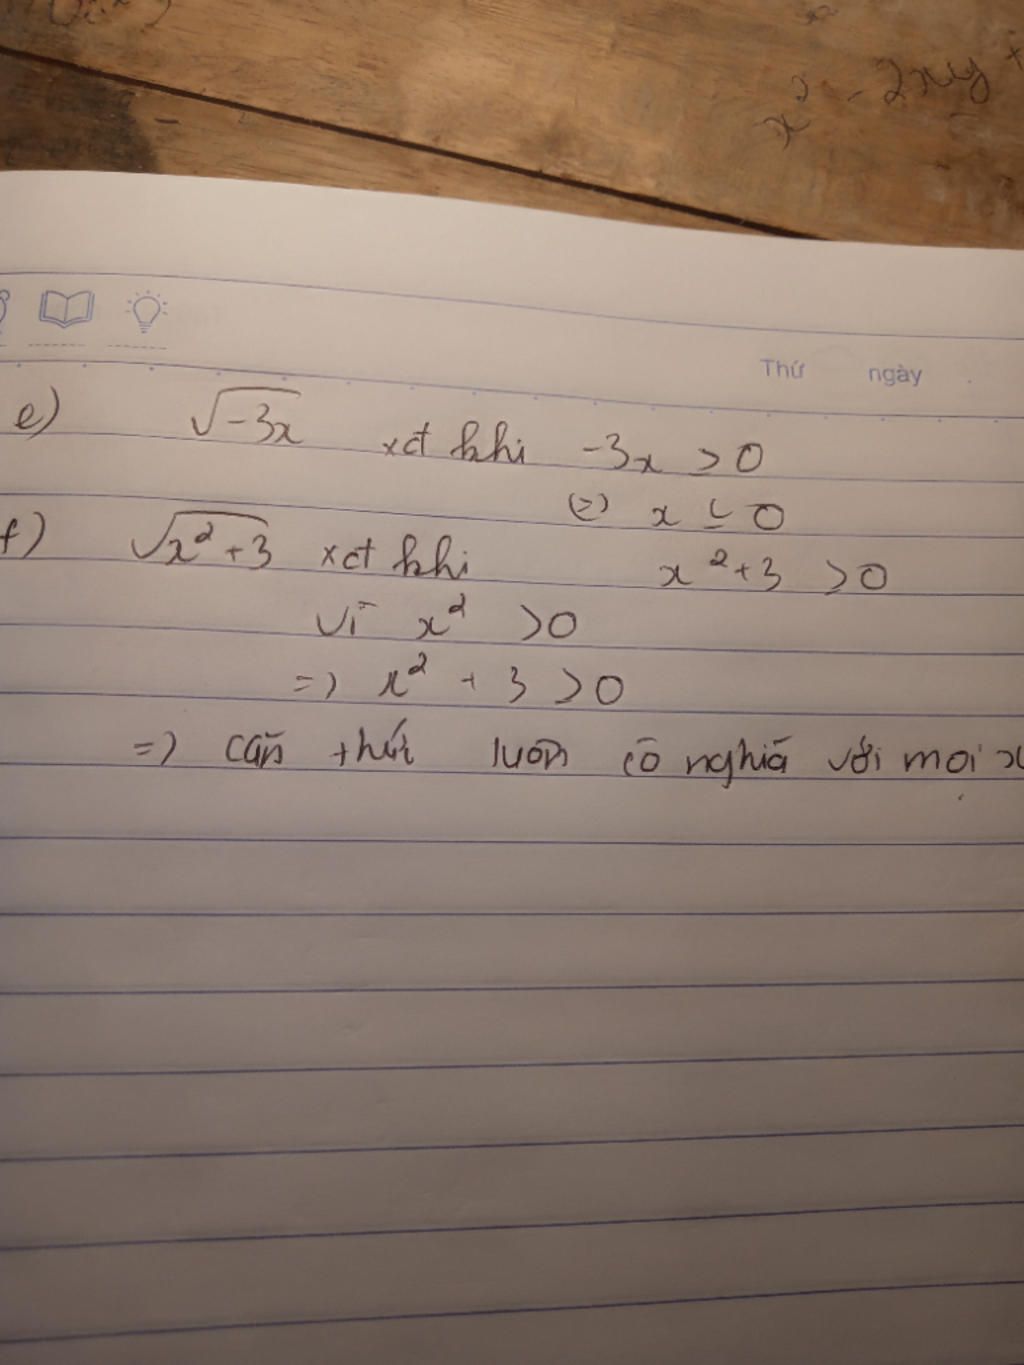 x² - 2xy +
Thứ ngày
e) √-3x xđ khi -3x > 0
(=) x ≤ 0
f) √x²+3 xđ khi x²+3 > 0
vì x² > 0
=) x² + 3 > 0
=) căn thức luôn có nghĩa với mọi x